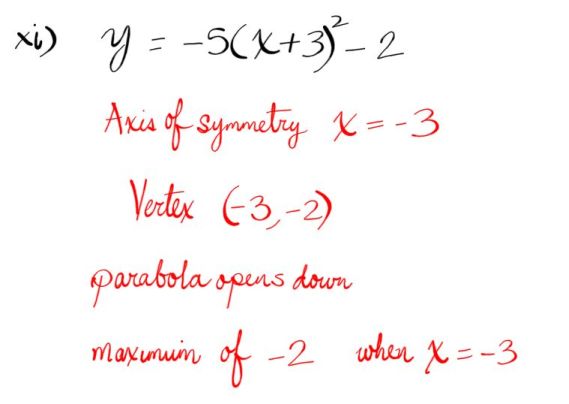 xi) y = -5(x+3)² - 2
Axis of symmetry x = -3
Vertex (-3, -2)
parabola opens down
maximum of -2 when x = -3